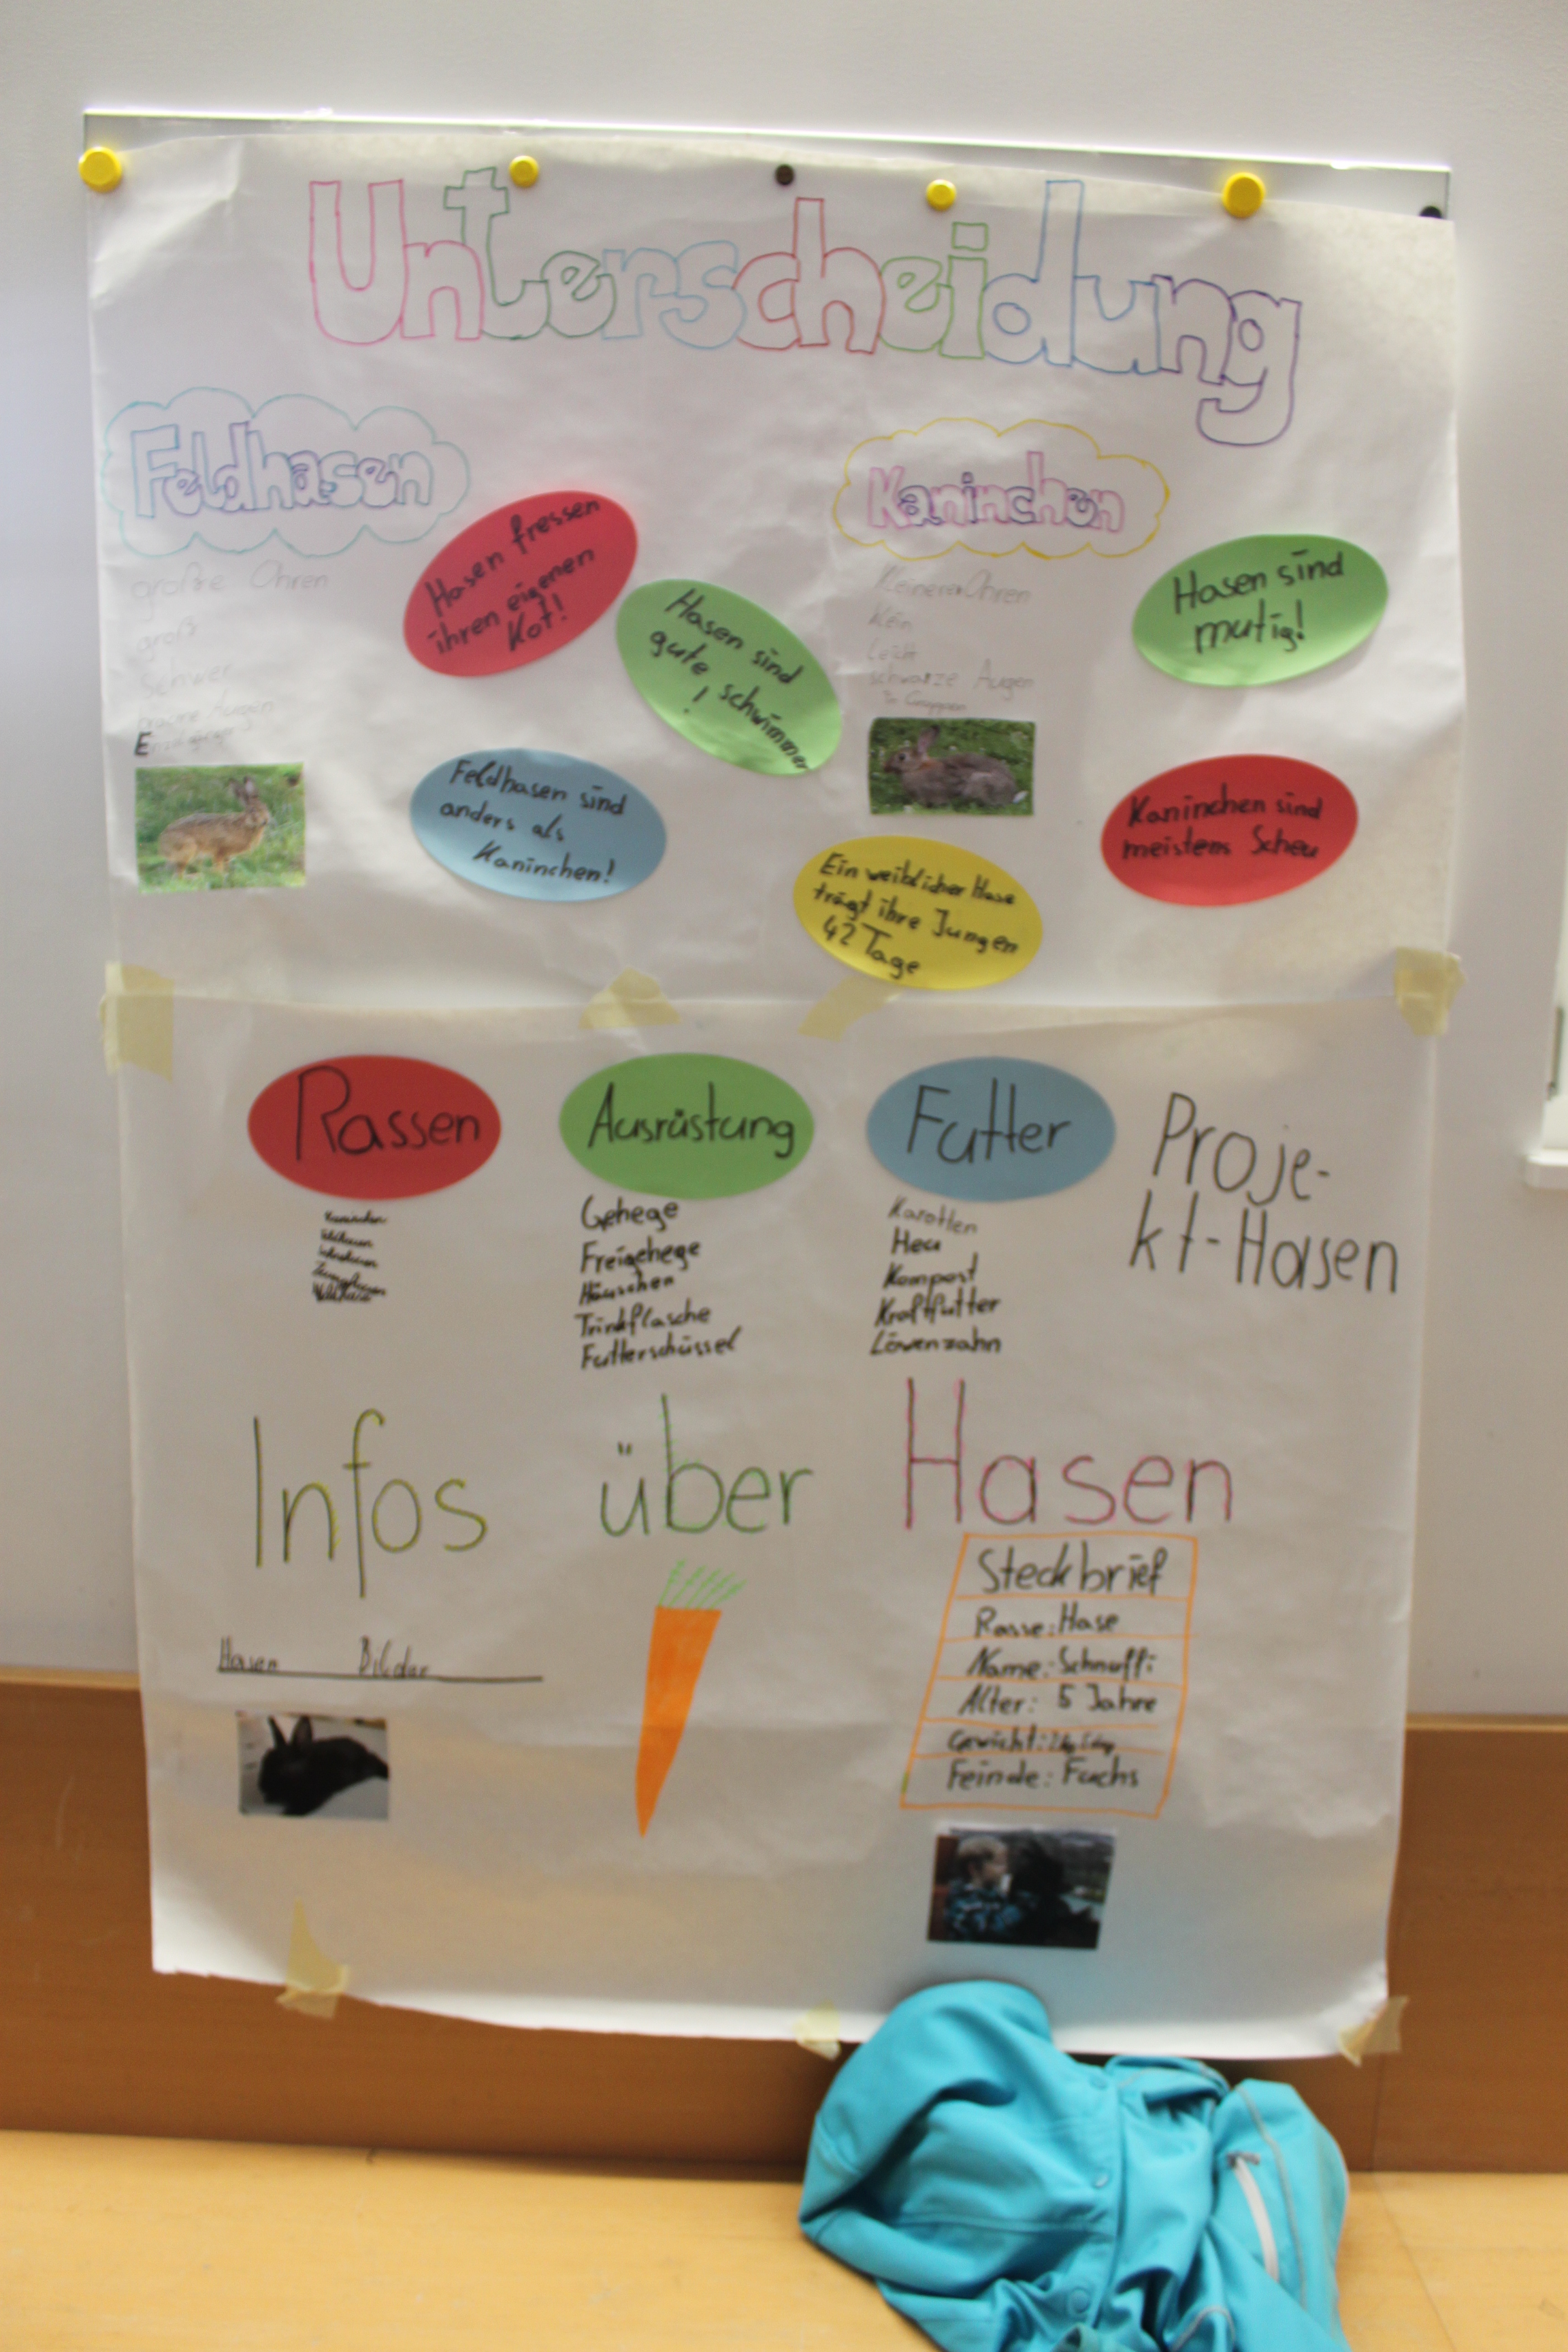 Unterscheidung
Feldhasen
große Ohren
groß
schwer
braune Augen
Hasen fressen
ihren eigenen
Kot!
Hasen sind
gute schwimmer
!
Feldhasen sind
anders als
Kaninchen!
Kaninchen
Kleinere Ohren
Klein
Leicht
schwarze Augen
In Gruppen
Hasen sind
mutig!
Kaninchen sind
meistens Scheu
Ein weiblicher Hase
trägt ihre Jungen
42 Tage
Rassen
Ausrüstung
Gehege
Freigehege
Häuschen
Trinkflasche
Futterschüssel
Futter
Karotten
Heu
Kompost
Kraftfutter
Löwenzahn
Proje-
kt-Hasen
Infos über Hasen
Hasen Bilder
Steckbrief
Rasse: Hase
Name: Schnuffi
Alter: 5 Jahre
Gewicht:
Feinde: Fuchs